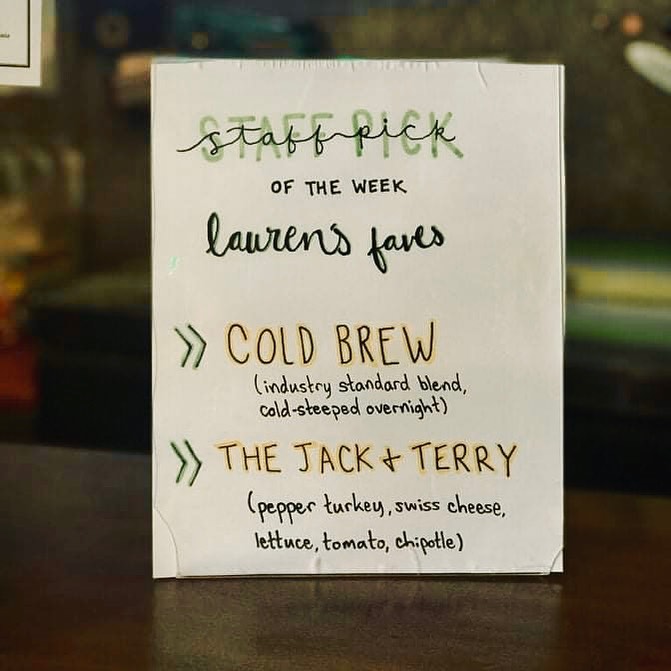 staff pick
STAFF PICK
OF THE WEEK
lauren's faves
>> COLD BREW
(industry standard blend,
cold-steeped overnight)
>> THE JACK + TERRY
(pepper turkey, swiss cheese,
lettuce, tomato, chipotle)